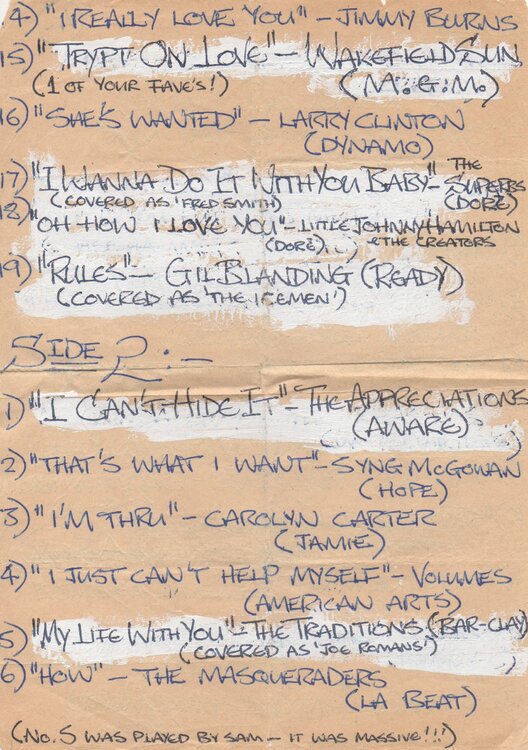 4) "I REALLY LOVE YOU" – JIMMY BURNS
15) "TRYPT ON LOVE" – WAKEFIELD SUN
(1 OF YOUR FAVE'S!) (M.G.M.)
16) "SHE'S WANTED" – LARRY CLINTON
(DYNAMO)
17) "I WANNA DO IT WITH YOU BABY" – THE SUPERBS
(COVERED AS 'FRED SMITH) (DORÉ)
18) "OH HOW I LOVE YOU" – LITTLE JOHNNY HAMILTON
(DORÉ) & THE CREATORS
19) "RULES" – GIL BLANDING (READY)
(COVERED AS 'THE ICEMEN')
SIDE 2:–
1) "I CAN'T HIDE IT" – THE APPRECIATIONS
(AWARE)
2) "THAT'S WHAT I WANT" – SYNG McGOWAN
(HOPE)
3) "I'M THRU" – CAROLYN CARTER
(JAMIE)
4) "I JUST CAN'T HELP MYSELF" – VOLUMES
(AMERICAN ARTS)
5) "MY LIFE WITH YOU" – THE TRADITIONS (BAR-CLAY)
(COVERED AS 'JOE ROMANS')
6) "HOW" – THE MASQUERADERS
(LA BEAT)
(NO. 5 WAS PLAYED BY SAM – IT WAS MASSIVE!!!)